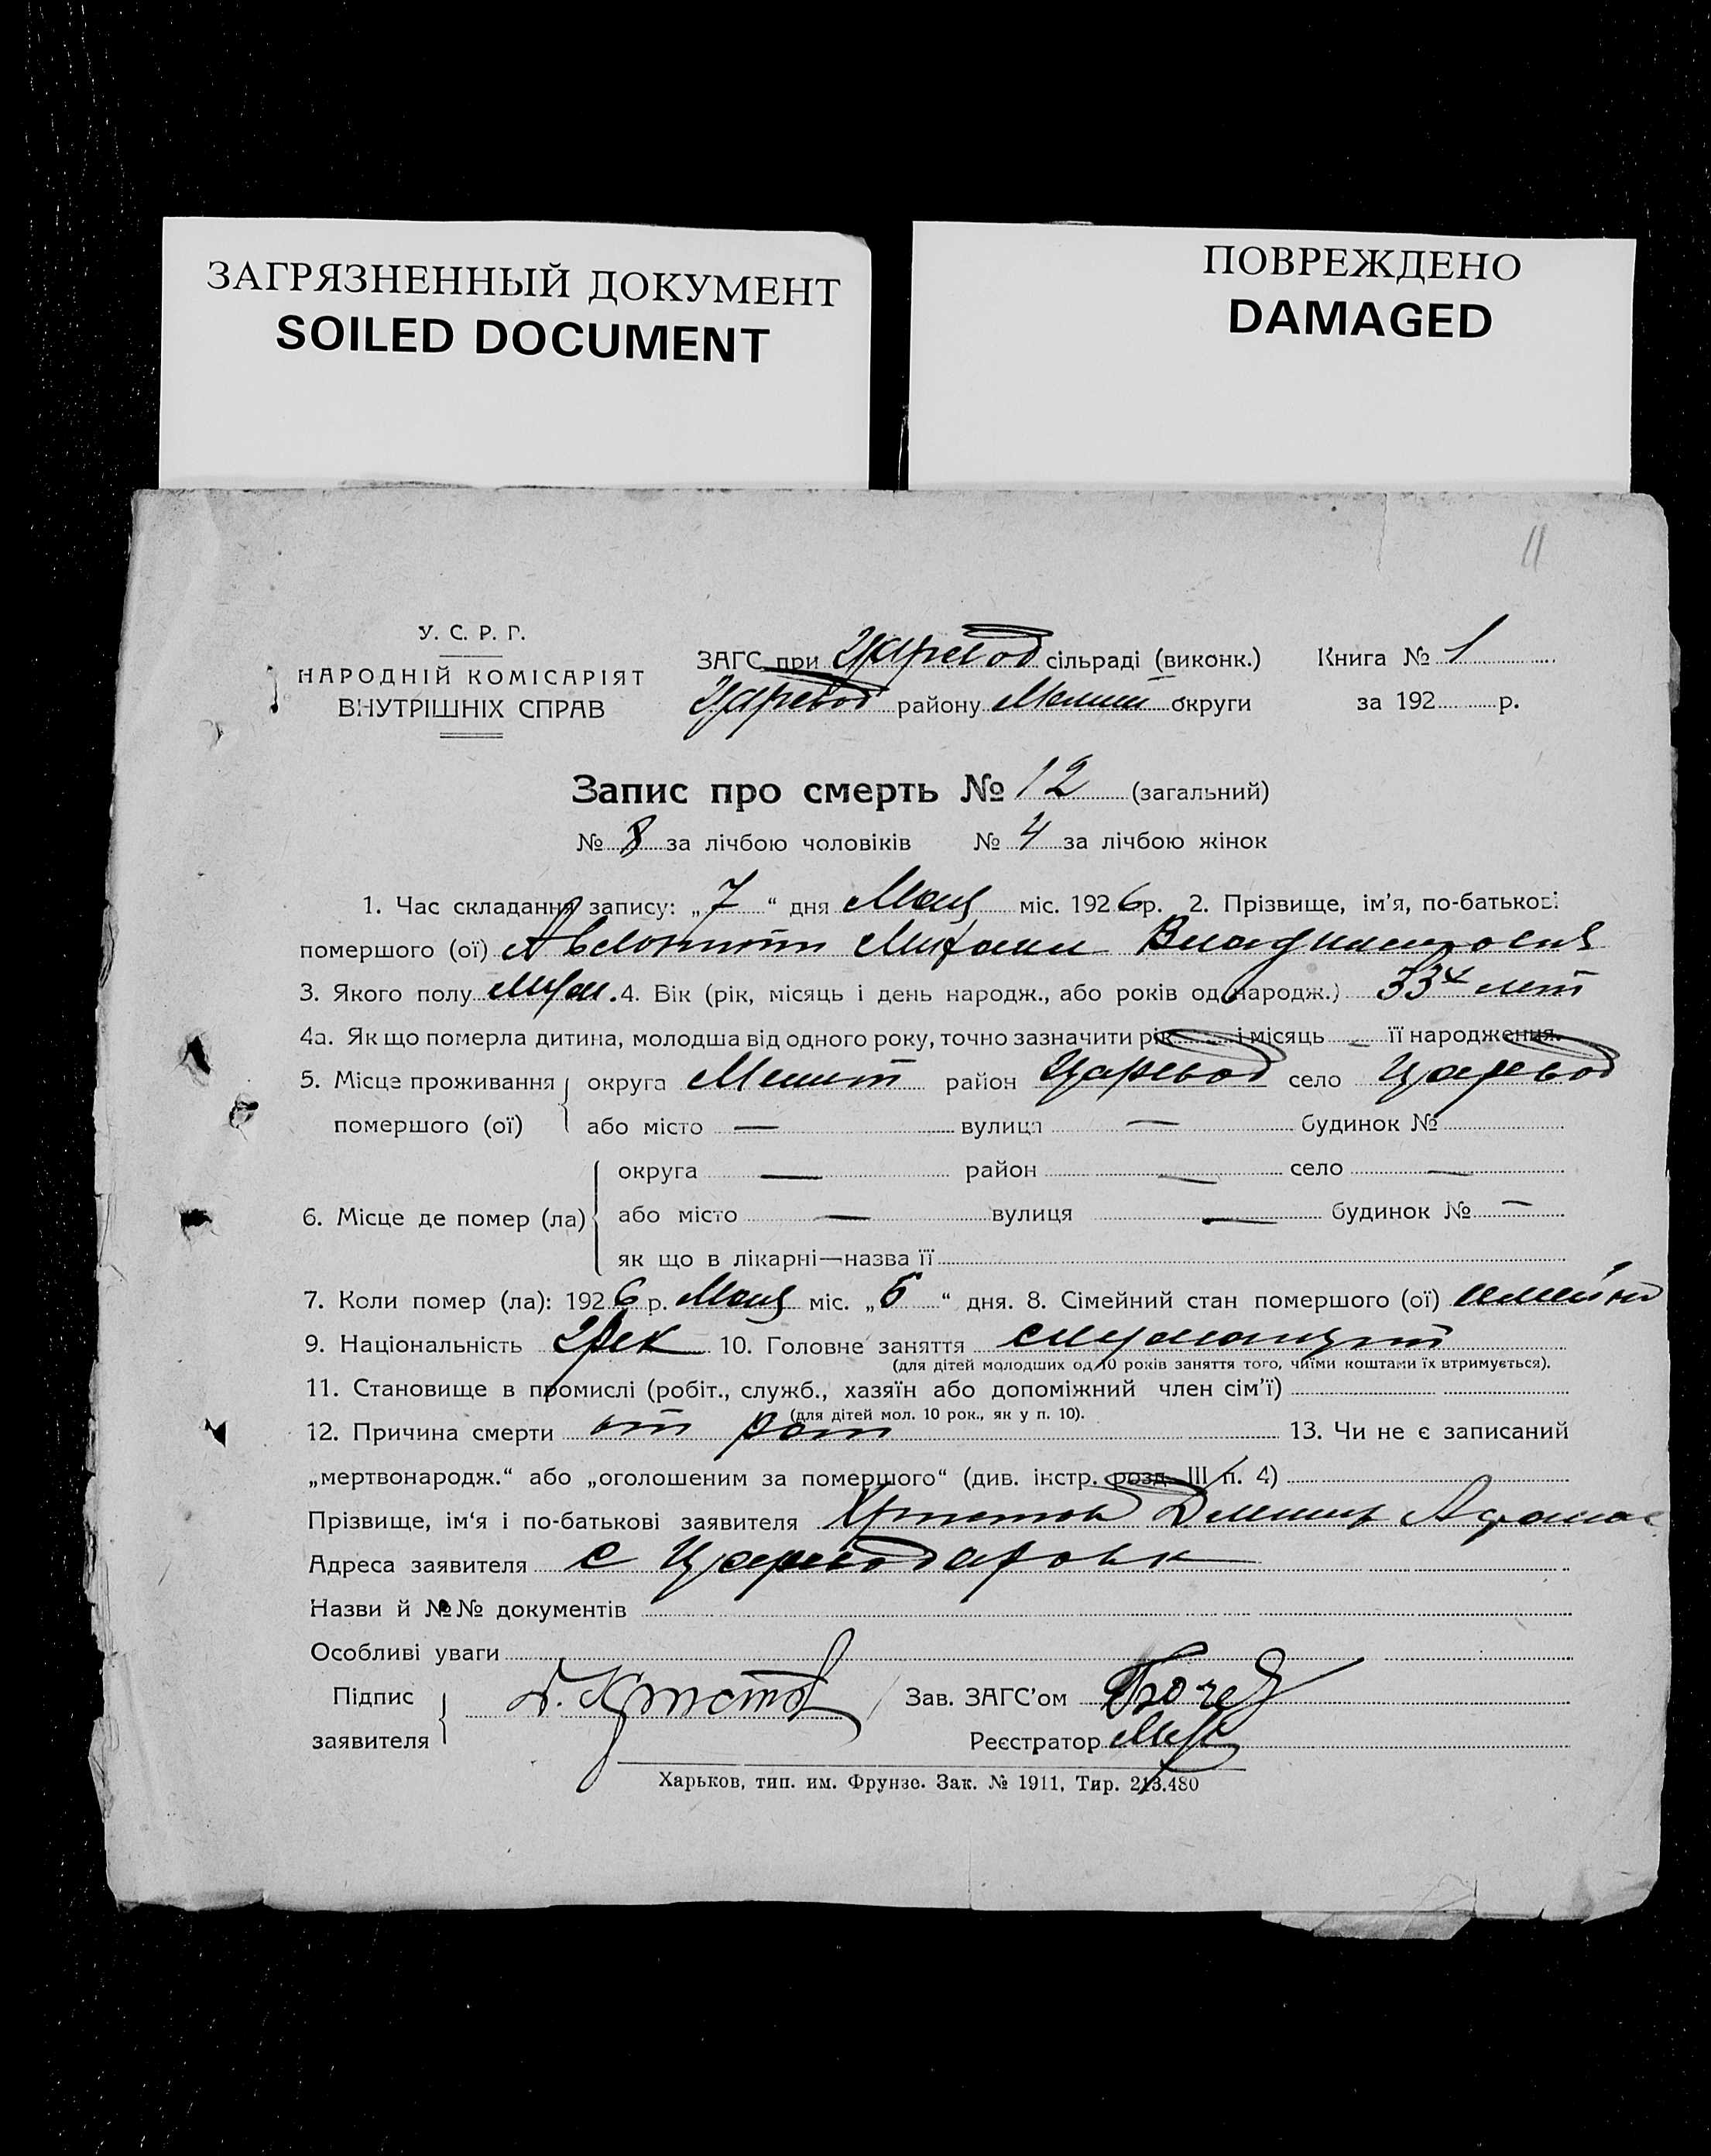 ЗАГРЯЗНЕННЫЙ ДОКУМЕНТ
SOILED DOCUMENT
ПОВРЕЖДЕНО
DAMAGED
11
У. С. Р. Р.
НАРОДНІЙ КОМІСАРІЯТ
ВНУТРІШНІХ СПРАВ
ЗАГС при Царевод сільраді (виконк.)
Царевод району Мелит округи
Книга № 1
за 192 р.
Запис про смерть № 12 (загальний)
№ 8 за лічбою чоловіків № 4 за лічбою жінок
1. Час складання запису: „7“ дня Мая міс. 1926 р. 2. Прізвище, ім’я, по-батькові
помершого (ої) Михаил
3. Якого полу муж. 4. Вік (рік, місяць і день народж., або років од народж.) 33х лет
4а. Як що померла дитина, молодша від одного року, точно зазначити рік і місяць — її народження.
5. Місце проживання округа Мелит район Царевод село Царевод
помершого (ої) або місто — вулиця — будинок №
округа — район — село —
6. Місце де помер (ла) або місто — вулиця — будинок № —
як що в лікарні—назва її
7. Коли помер (ла): 1926 р. Мая міс. „5“ дня. 8. Сімейний стан помершого (ої)
9. Національність Грек 10. Головне заняття
(для дітей молодших од 10 років заняття того, чиїми коштами їх втримується).
11. Становище в промислі (робіт., служб., хазяїн або допоміжний член сім’ї)
(для дітей мол. 10 рок., як у п. 10).
12. Причина смерти от 13. Чи не є записаний
„мертвонародж.“ або „оголошеним за помершого“ (див. інстр. розд. III п. 4)
Прізвище, ім‘я і по-батькові заявителя Христов
Адреса заявителя с Царевод
Назви й №№ документів
Особливі уваги
Підпис
заявителя
Д. Христов
Зав. ЗАГС’ом
Реєстратор
Харьков, тип. им. Фрунзе. Зак. № 1911, Тир. 213.480